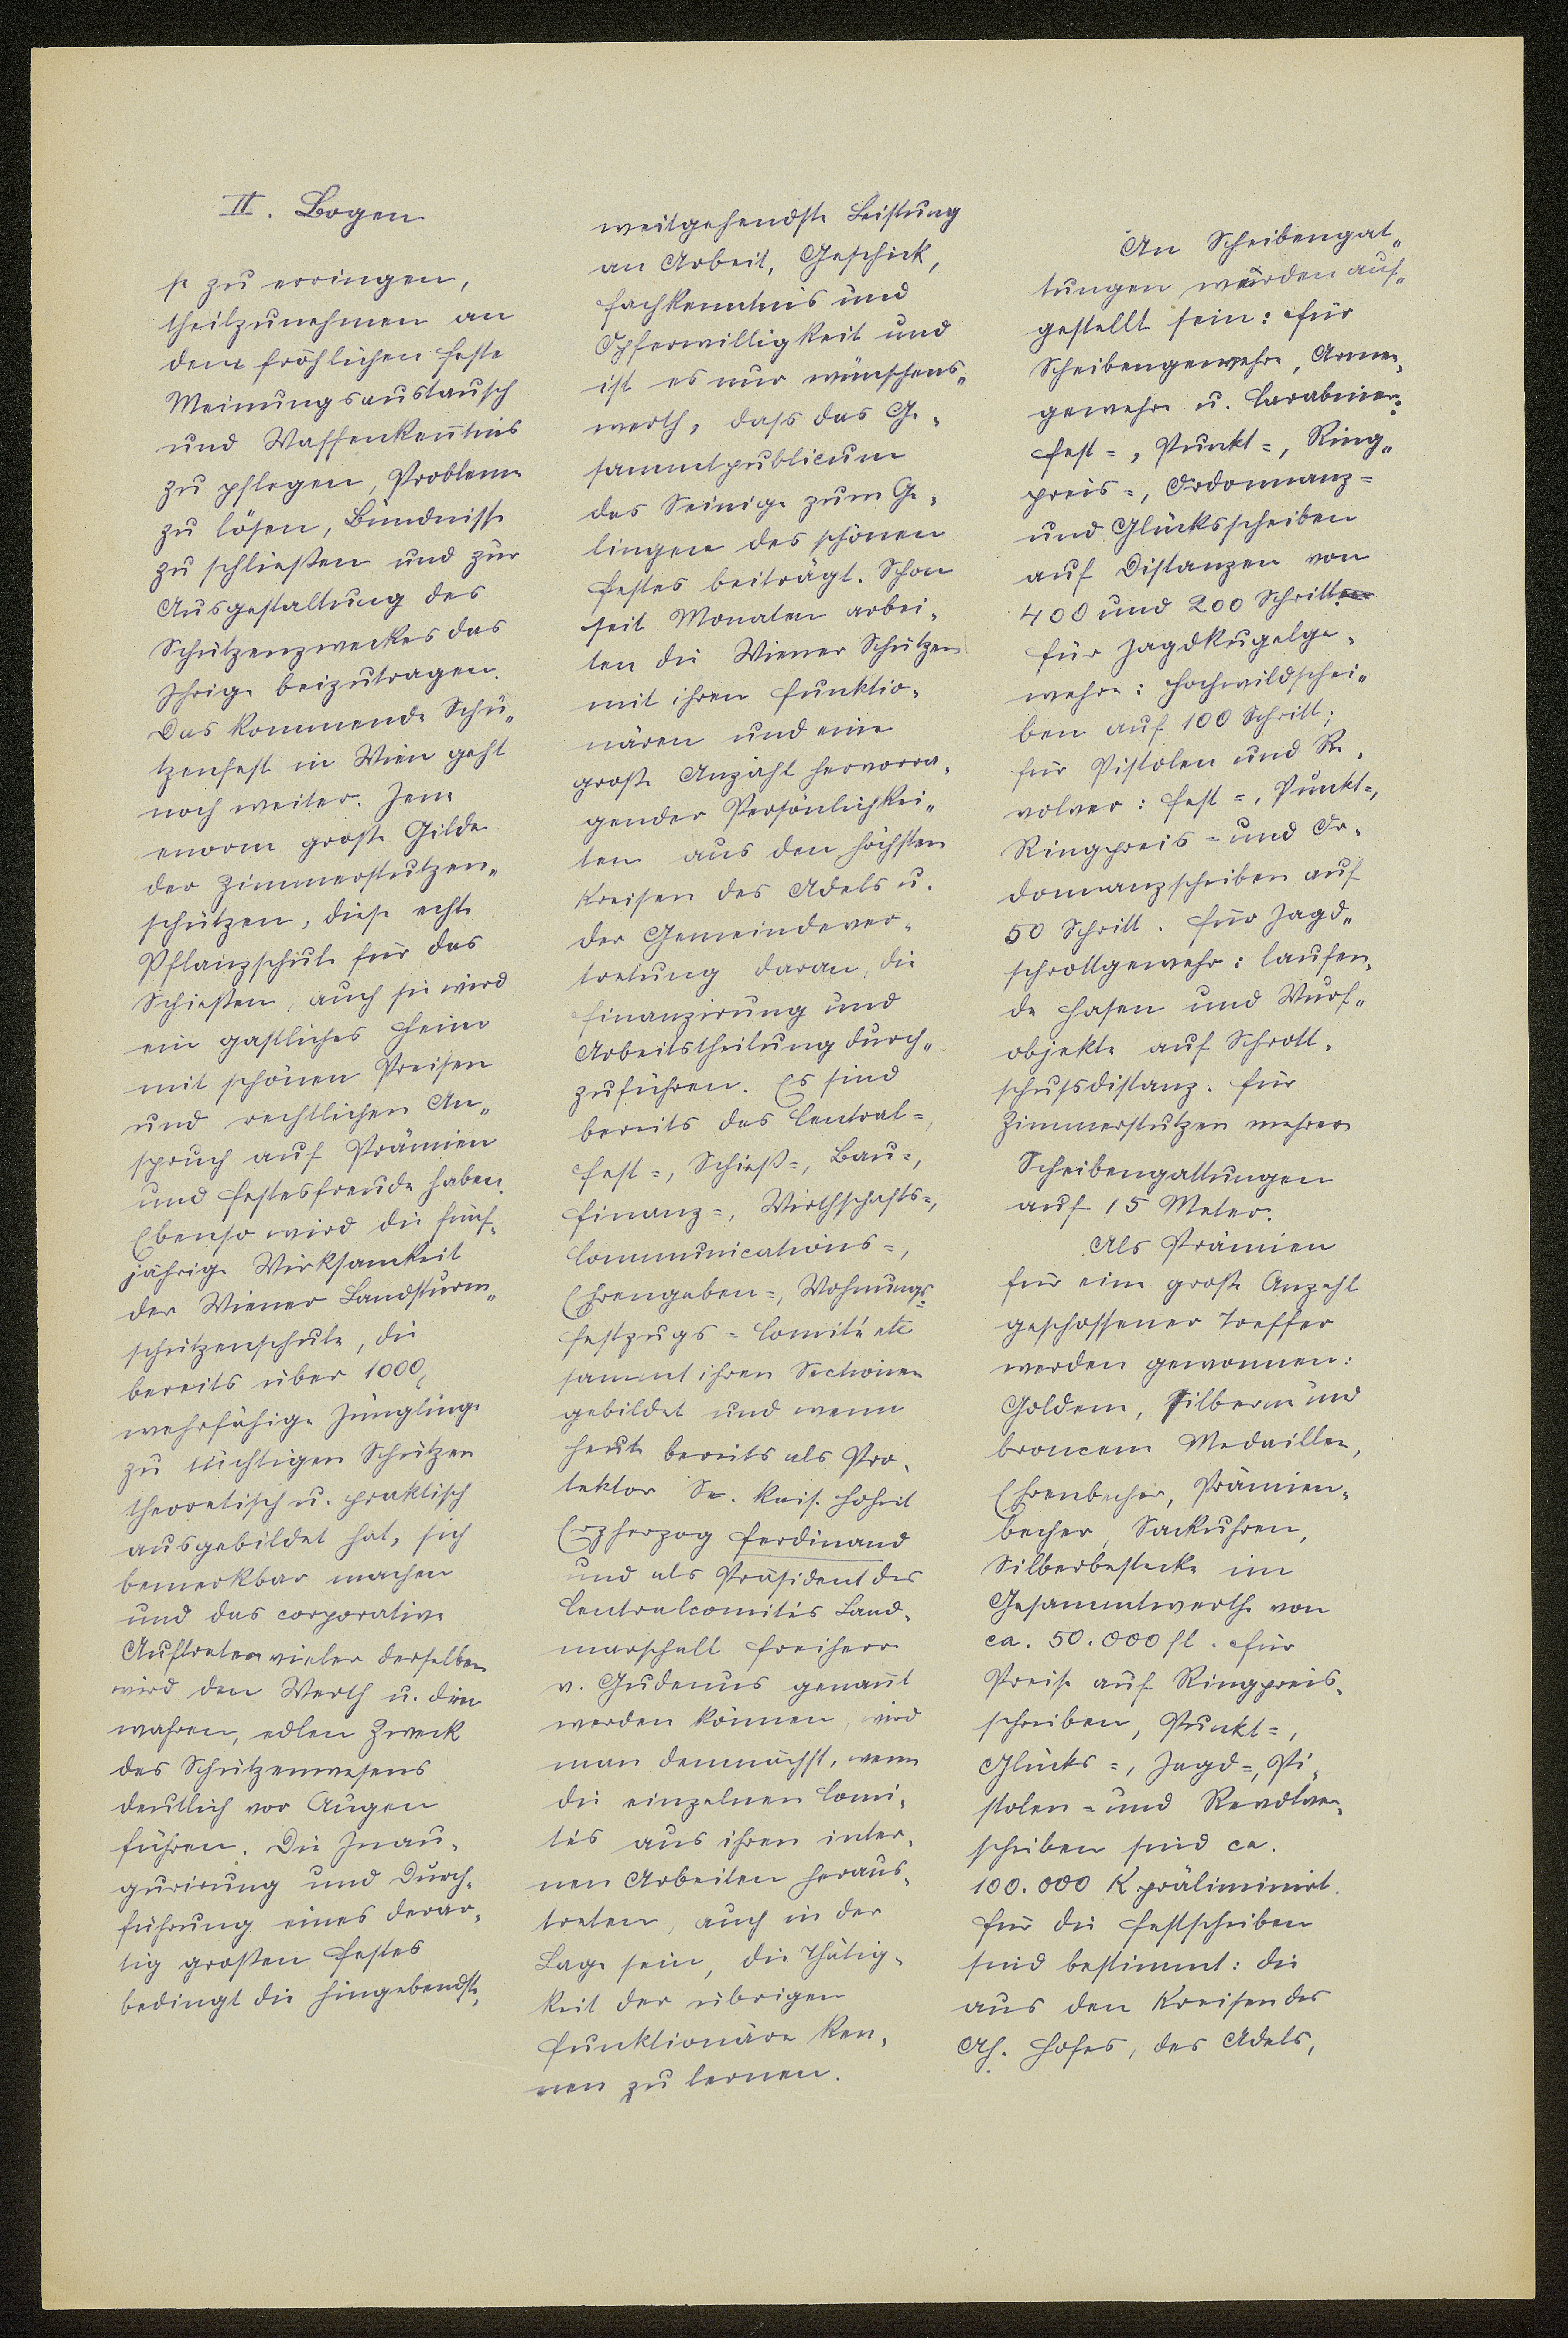 II. Bogen
se zu erringen,
theilzunehmen an
dem fröhlichen Feste
Meinungsaustausch
und Waffenkenn̄tnis
zu pflegen, Probleme
zu lösen, Bündnisse
zu schließen und zur
Ausgestaltung des
Schützenzweckes das
Ihrige beizutragen.
Das kommende Schü„
tzenfest in Wien geht
noch weiter. Jene
enorm große Gilde
der Zimmerstutzen„
schützen, diese echte
Pflanzschule für das
Schießen, auch sie wird
ein gastliches Heim
mit schönen Preisen
und rechtlichen An„
spruch auf Prämien
und Festesfreude haben.
Ebenso wird die fünf„
jährige Wirksamkeit
der Wiener Landsturm„
schützenschule, die
bereits über 1000
wehrfähige Jünglinge
zu tüchtigen Schützen
theoretisch u. praktisch
ausgebildet hat, sich
bemerkbar machen
und das corporative
Auftreten vieler derselben
wird den Werth u. den
wahren, edlen Zweck
des Schützenwesens
deutlich vor Augen
führen. Die Inau„
gurirung und Durch„
führung eines derar„
tig großen Festes
bedingt die hingebendste,
weitgehendste Leistung
an Arbeit, Geschick,
Fachkenntnis und
Opferwilligkeit und
ist es nur wünschens„
werth, dass das Ge„
sammtpublicum
das Seinige zum Ge„
lingen des schönen
Festes beiträgt. Schon
seit Monaten arbei„
ten die Wiener Schützen
mit ihren Funktio„
nären und eine
große Anzahl hervorra„
gender Persönlichkei„
ten aus den höchsten
Kreisen des Adels u.
der Gemeindever„
tretung daran, die
Finanzirung und
Arbeitstheilung durch„
zuführen. Es sind
bereits das Central=,
Fest=, Schieß=, Bau=,
Finanz=, Wirthschafts=,
Communications=,
Ehrengaben=, Wohnungs=
Festzugs=Comité etc
sammt ihren Sectionen
gebildet und wenn
heute bereits als Pro„
tektor Se. kais. Hoheit
Erzherzog Ferdinand
und als Präsident des
Centralcomités Land„
marschall Freiherr
v. Gudenus genan̄t
werden können, wird
man demnächst, wenn
die einzelnen Comi„
tés aus ihren inter„
nen Arbeiten heraus„
treten, auch in der
Lage sein, die Thätig„
keit der übrigen
Funktionäre ken„
nen zu lernen.
An Scheibengat„
tungen würden auf„
gestellt sein: Für
Scheibengewehre, Armee„
gewehre u. Carabiner:
Fest=, Punkt=, Ring„
preis=, Ordonnanz=
und Glücksscheiben
auf Distanzen von
400 und 200 Schritt
für Jagdkugelge„
wehre: Hochwildschei„
ben auf 100 Schritt;
für Pistolen und Re„
volver: Fest=, Punkt=,
Ringpreis= und Or„
donnanzscheiben auf
50 Schritt. Für Jagd„
schrottgewehr: laufen„
de Hasen und Wurf„
objekte auf Schrott„
schußdistanz. Für
Zimmerstutzen mehrere
Scheibengattungen
auf 15 Meter.
Als Prämien
für eine große Anzahl
geschossener Treffer
werden gewonnen:
Goldene, silberne und
broncene Medaillen,
Ehrenbecher, Prämien„
becher, Sackuhren,
Silberbestecke im
Gesammtwerthe von
ca. 50.000 fl. Für
Preise auf Ringpreis„
scheiben, Punkt=,
Glücks=, Jagd=, Pi„
stolen= und Revolver„
scheiben sind ca.
100.000 K präliminirt.
Für die Festscheiben
sind bestimmt: die
aus den Kreisen des
Ah. Hofes, des Adels,